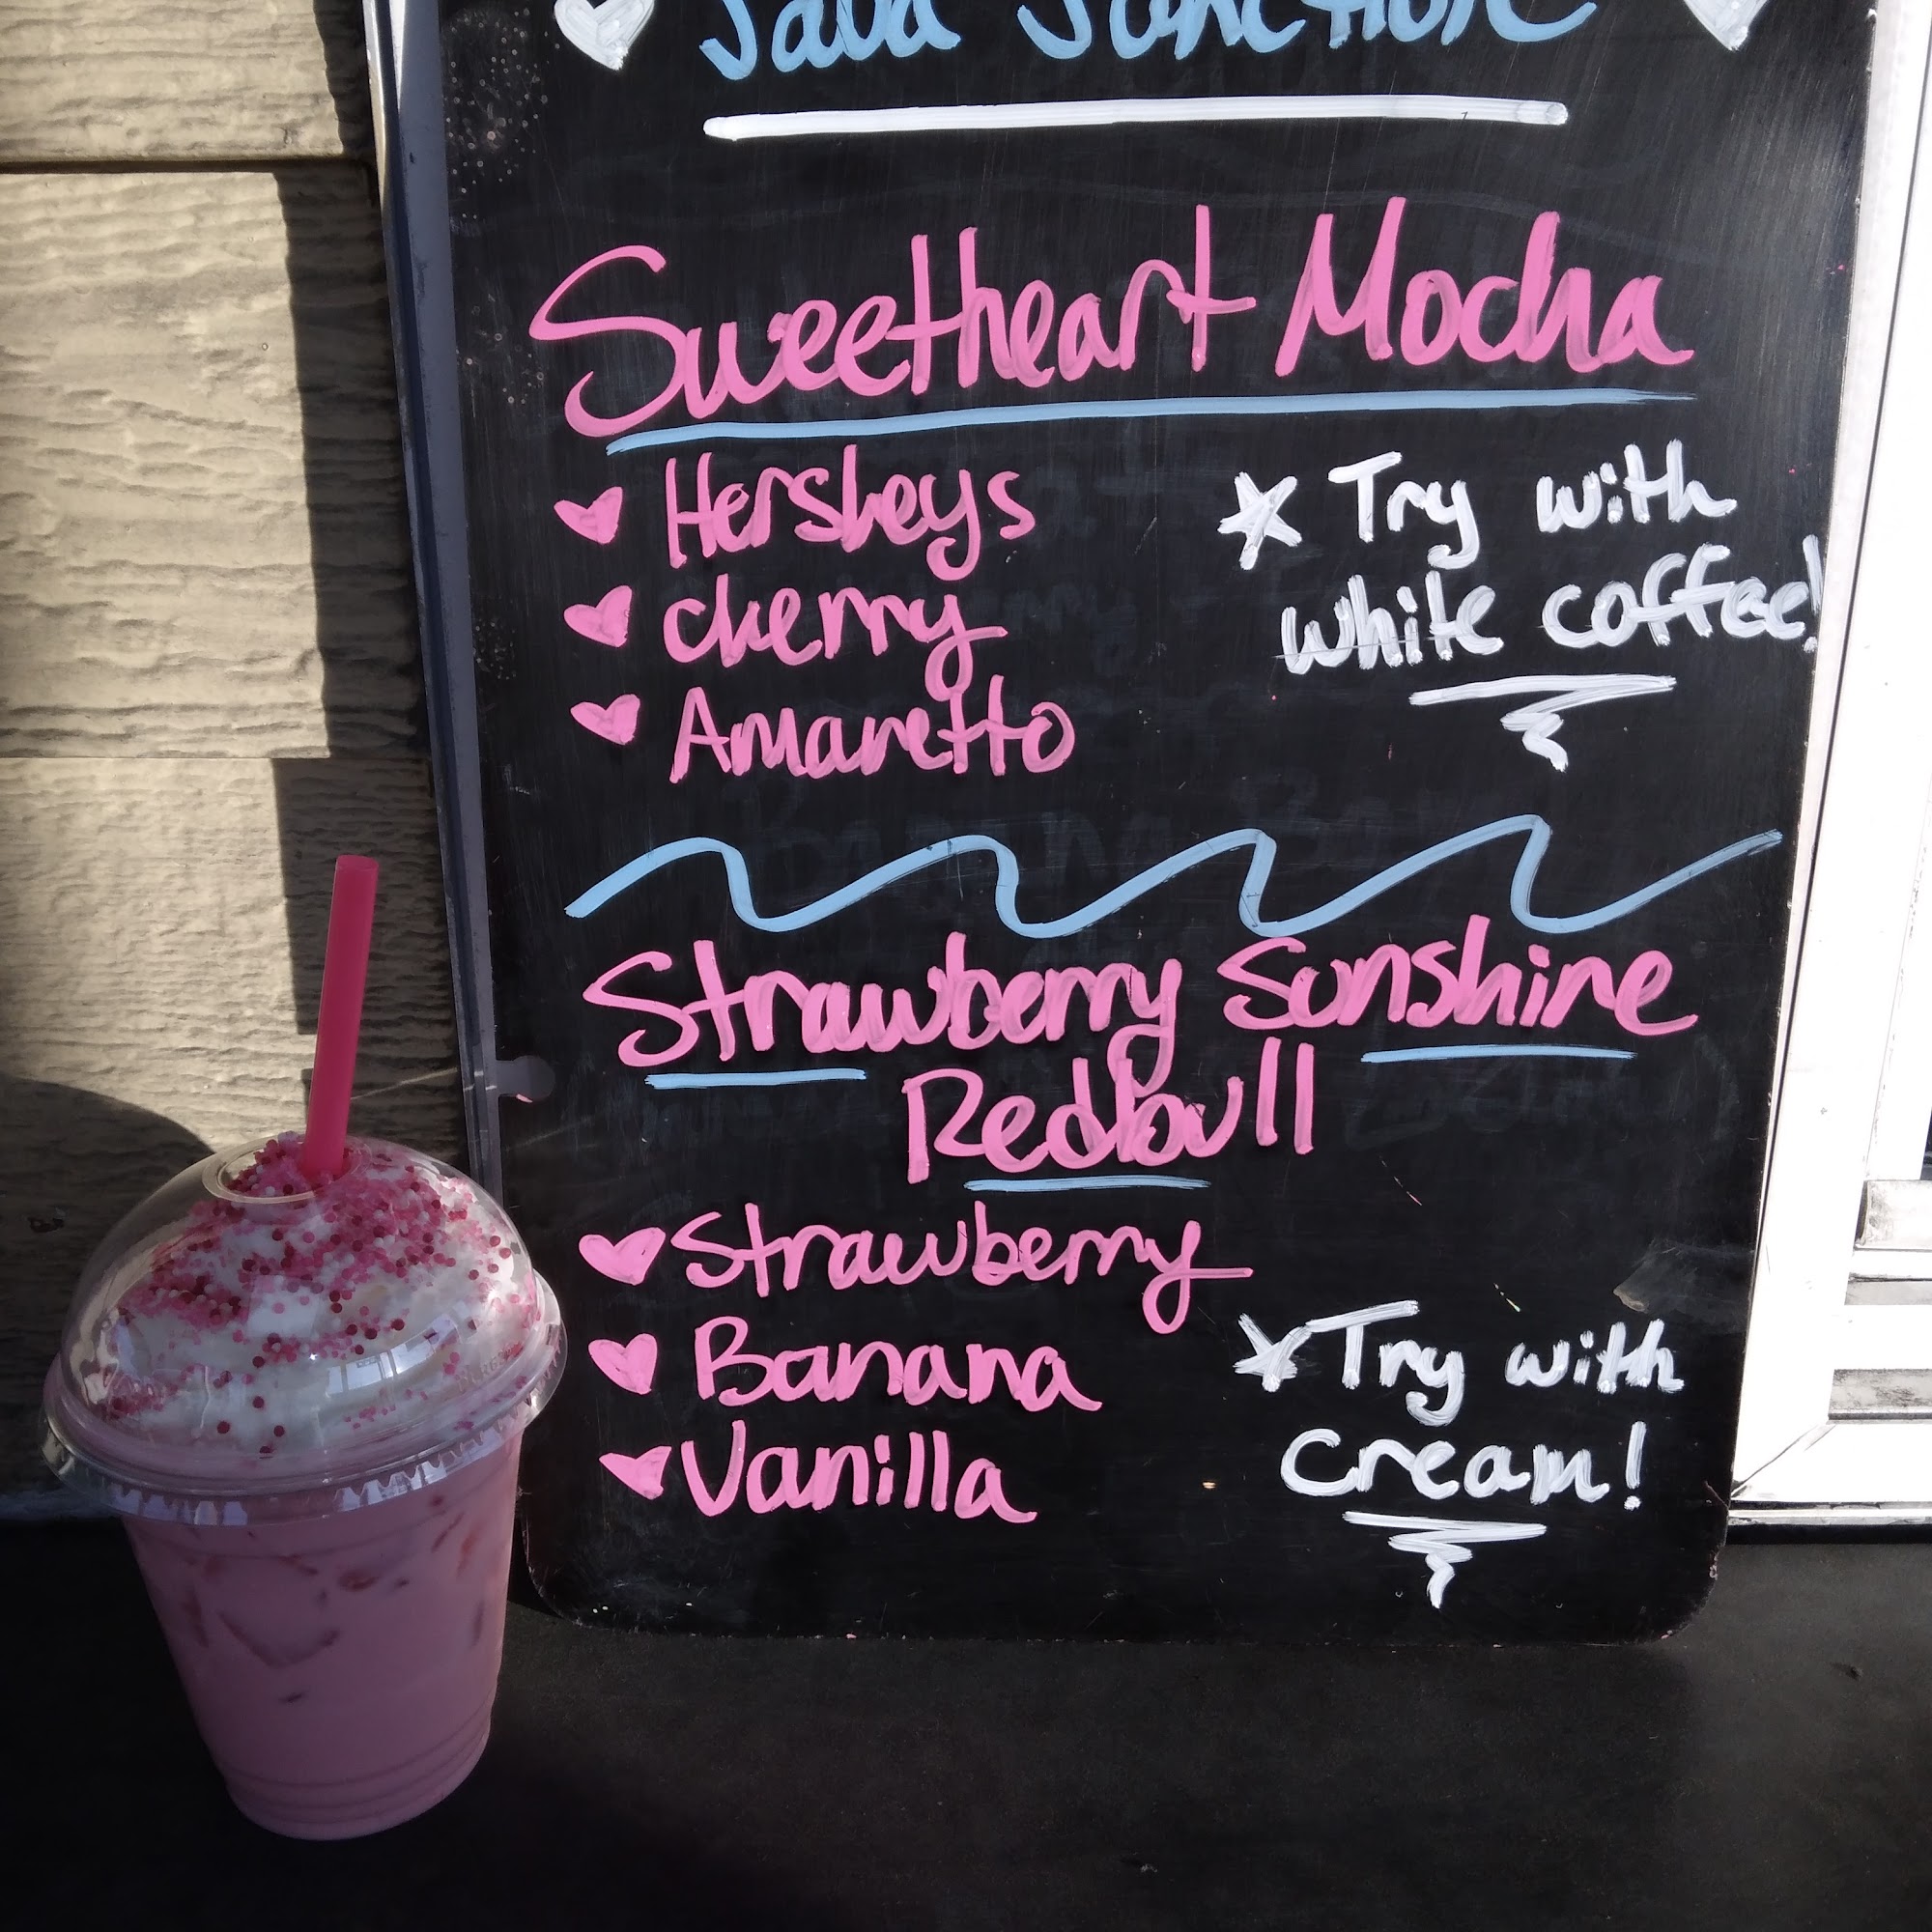 Java Junction
Sweetheart Mocha
Hersheys
cherry
Amaretto
Try with
white coffee!
Strawberry Sunshine
Redbull
Strawberry
Banana
Vanilla
Try with
cream!